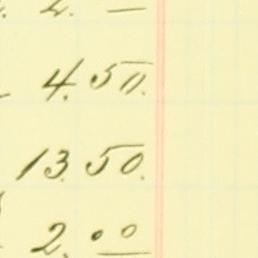 2. —
4.50.
13.50.
2.00